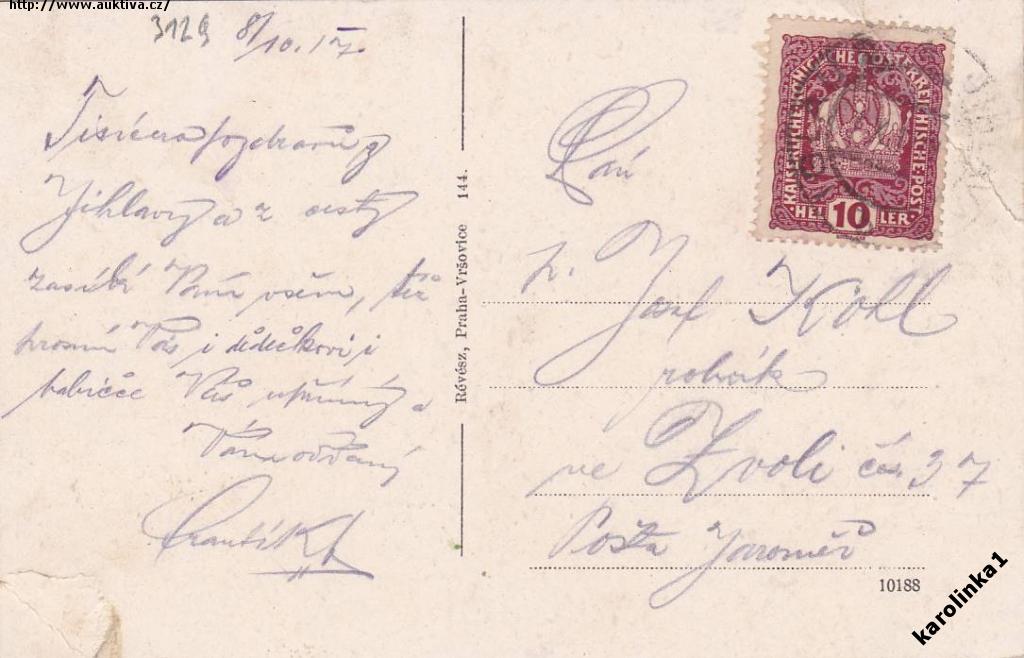 http://www.auktiva.cz/
3129 8/10.17.
Tisícera pozdravů z
Jihlavy a z cesty
zasílá Vám všem, též
prosím Vás i dědečkovi i
babičce Váš upřímný a
Vám oddaný
František
Révész, Praha-Vršovice 144.
KAISERLICHE KÖNIGLICHE ÖSTERREICHISCHE POST
HELLER
10
Pán
Josef Kohl
rolník
ve Zvoli čís 37
Pošta Jaroměř
10188
karolinka1